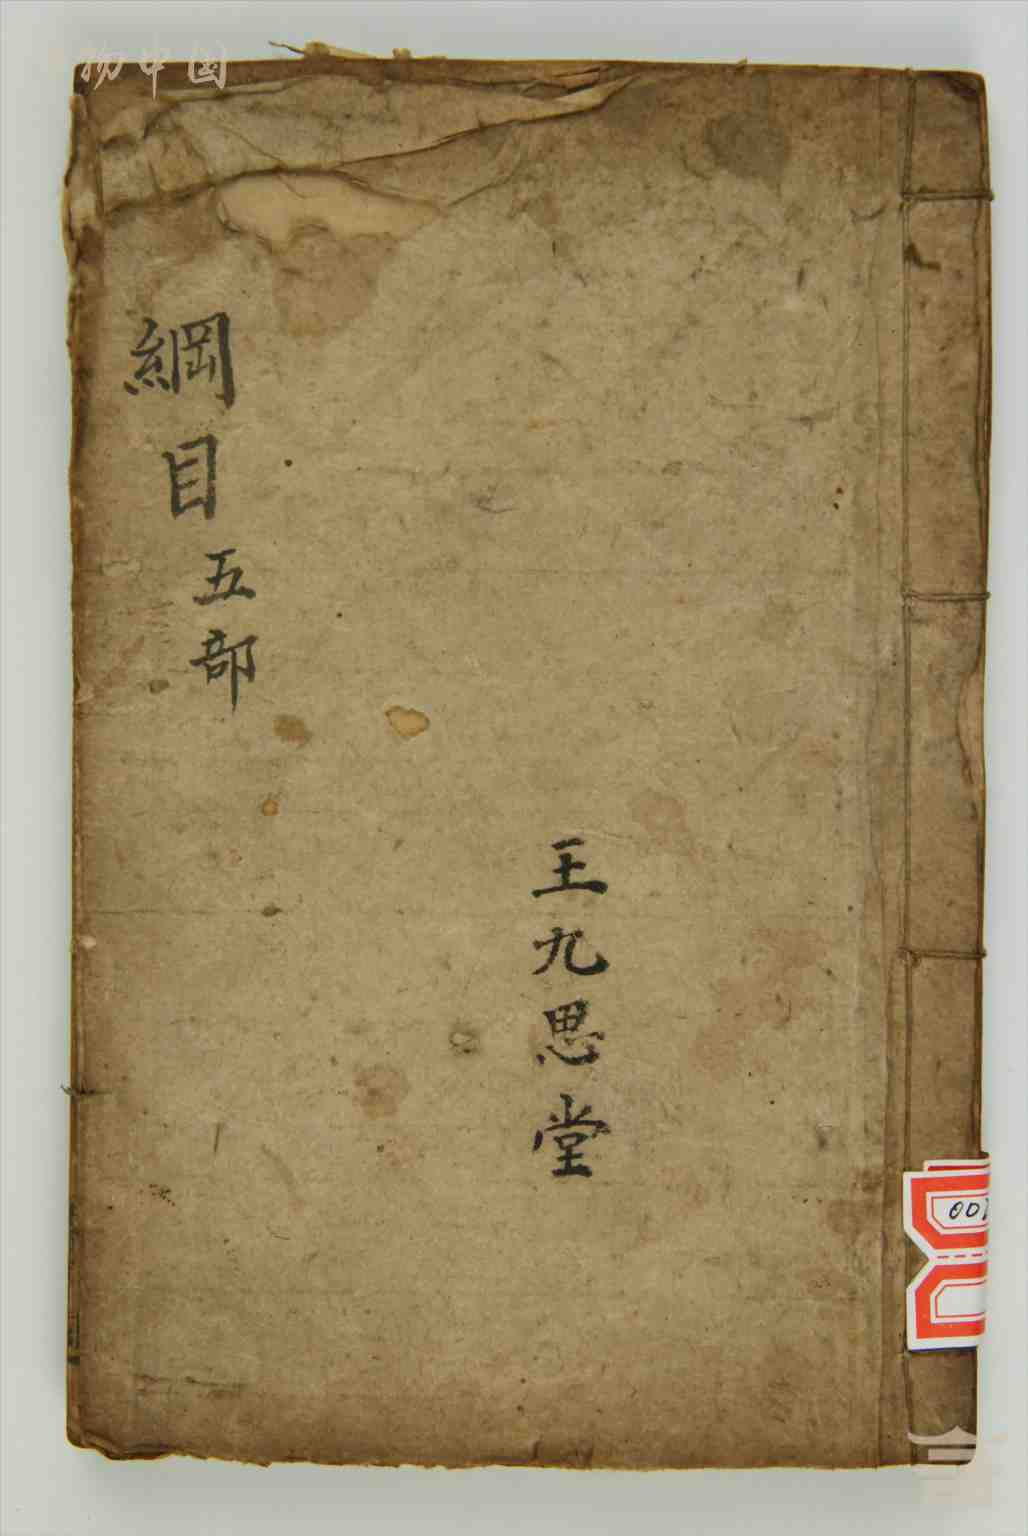 物中国
綱目五部
王九思堂
00